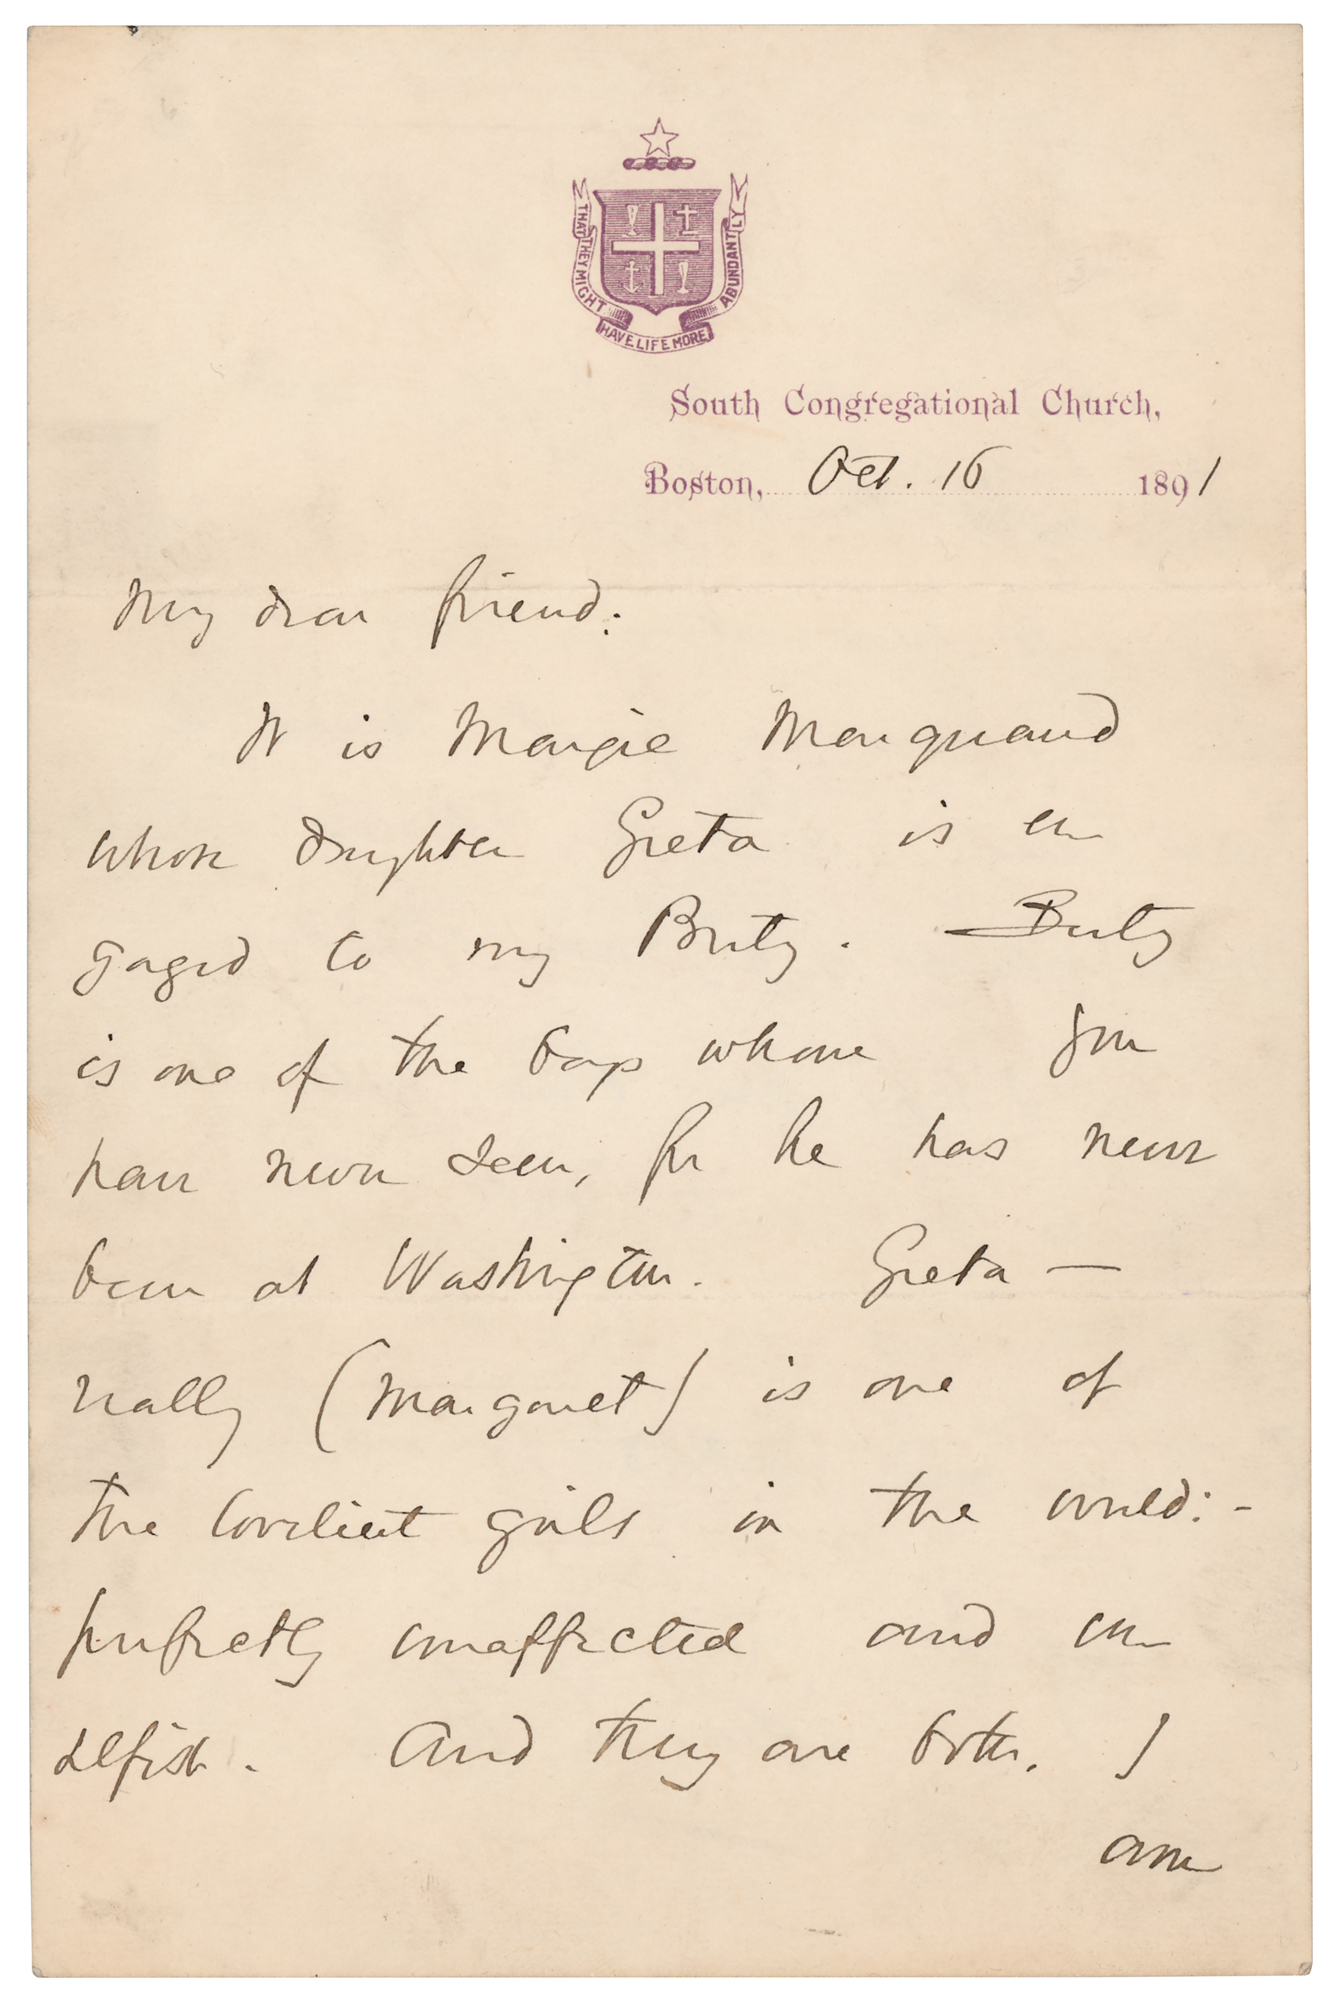 THAT THEY MIGHT HAVE LIFE MORE ABUNDANTLY
South Congregational Church,
Boston, Oct. 16 1891
My dear friend:
It is Margie Marquand
whose daughter Greta is en
gaged to my Berty. Berty
is one of the boys whom you
have never seen, for he has never
been at Washington. Greta —
really (Margaret) is one of
the loveliest girls in the world:-
perfectly unaffected and un
selfish. And they are both, I
am